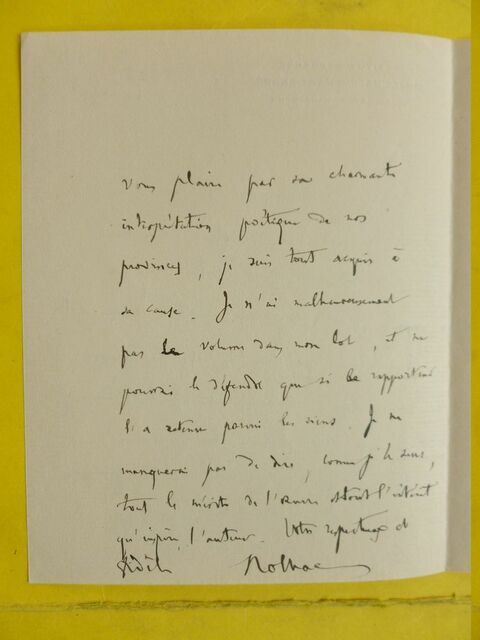 vous plaire par sa charmante
interprétation poétique de nos
provinces, je suis tout acquis à
sa cause. Je n'ai malheureusement
pas le volume dans mon lot, et ne
pourrai le défendre que si le rapporteur
l'a retenu parmi les siens. Je ne
manquerai pas de dire, comme je le sens,
tout le mérite de l'œuvre et tout l'intérêt
qu'inspire l'auteur. Votre respectueux et
fidèle Nolhac